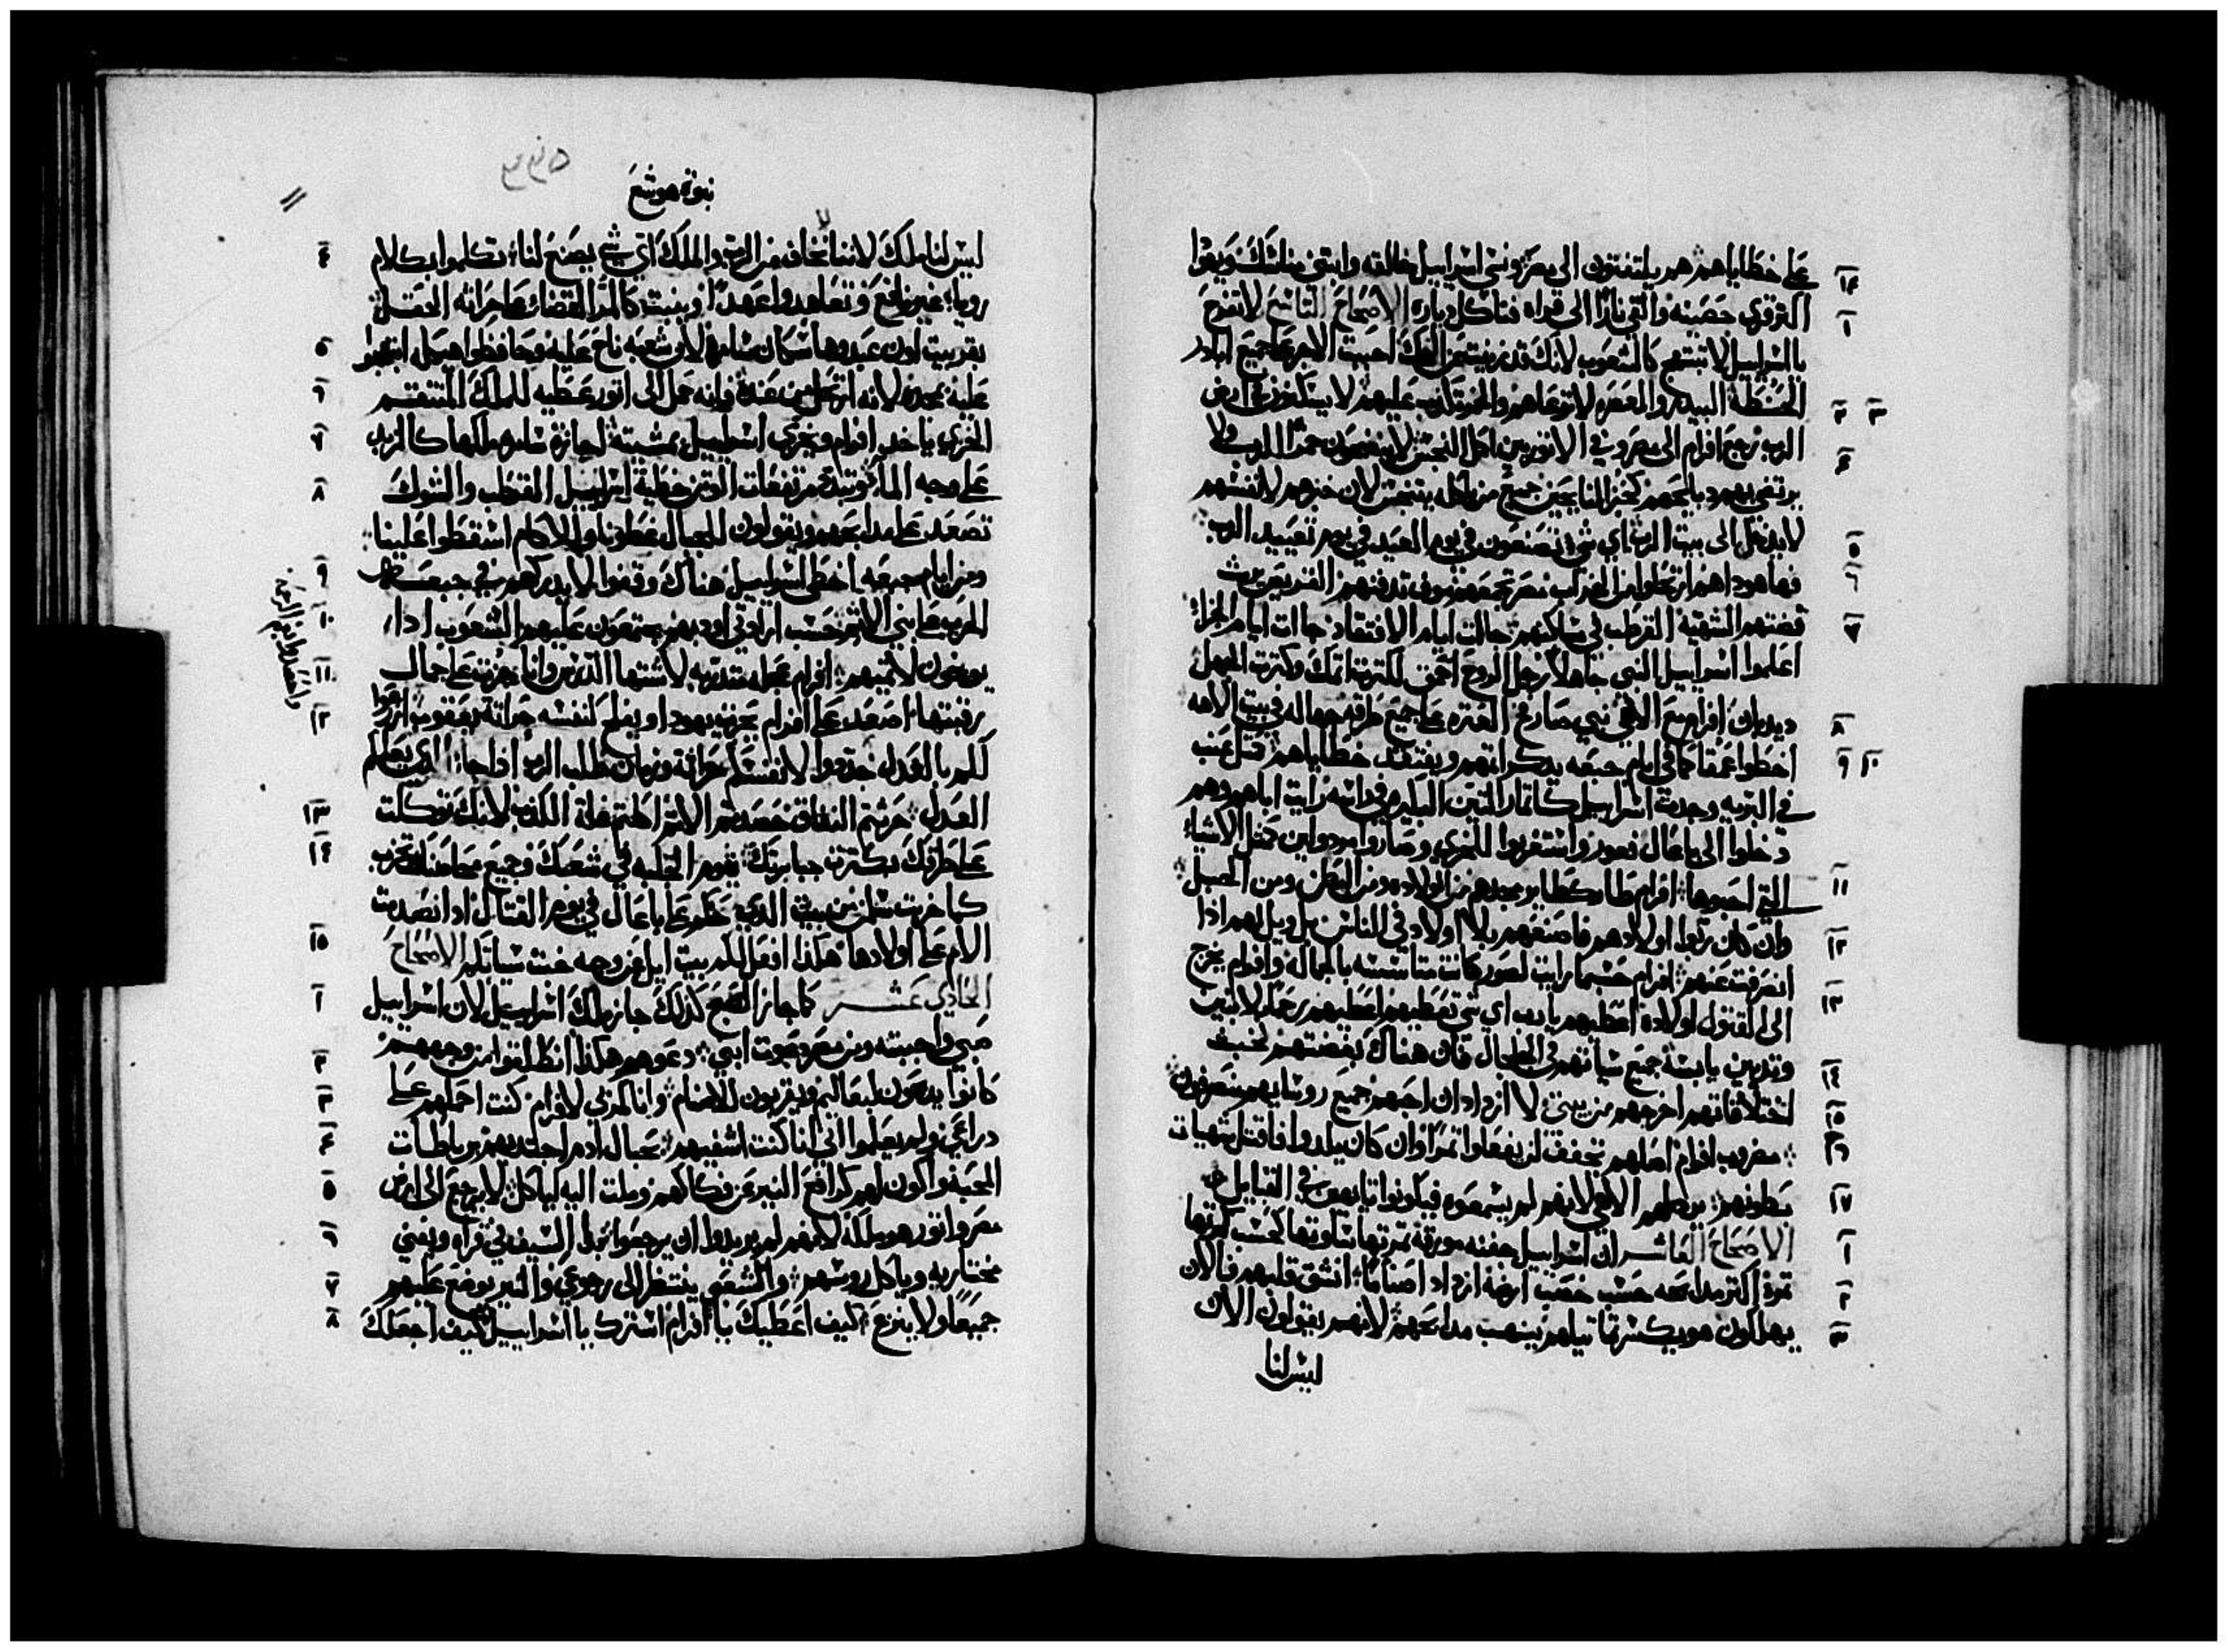 على خطاياهم هم يلتفتون الى مصر ونسي اسراييل خالقه وابتنى مناسك ويهودا
١٤
اكثر قري حصينه والقي نارًا الى قراه فتاكل دياره الاصحاح التاسع لا تفرح
١
يا اسراييل لا تبتهج كالشعوب لانك قد زنيت من الهك احببت الاجر على جميع ابادر
الحنطة البيدر والمعصره لا ترعاهم والخمر تكذب عليهم لا يسكنون في ارض
٢ ٣
الرب رجع افرام الى مصر وفي الاثوريين اكل النجس لا ينضحون خمرًا للرب ولا
٤
يرتضي بهم ذبايحهم كخبز النايحين جميع من ياكله يتنجس لان خبزهم لانفسهم
لا يدخل الى بيت الرب اي شي تصنعون في يوم العيد في يوم تعييد الرب
٥
فها هوذا هم ارتحلوا من الخراب مصر تجمعهم منوف تدفنهم القريص يرث
٦
فضتهم الشهية القرطب في مساكنهم جاات ايام الافتقاد جاات ايام الجزاء
٧
اعلموا اسراييل النبي جاهلًا رجل الروح احمق لكثرة اثمك وكثرت الجهل
ديدبان افرام مع الاهي نبي صار فخ العثره على جميع طرقه جهاله في بيت الاهه
٨
اخطوا عمقًا كما في ايام جبعه يذكر اثمهم ويفتقد خطاياهم مثل عنب
٩ ١٠
في البريه وجدت اسراييل كاثمار التين الباكره في راسه رايت اباهم وهم
دخلوا الى باعال فعور واستغربوا للخزي وصاروا مرذولين كمثل الاشياء
التي احبوها افرام طار كطاير مجدهم من الولاده ومن البطن ومن الحبل
١١
وان كان ربوا اولادهم فاصنعهم بلا اولاد في الناس بل ويل لهم اذا
١٢
انصرفت عنهم افرام حسبما رايت لصور كانت متاسسه بالجمال وافرام يخرج
١٣
الى القتول اولاده اعطيهم يا رب اي شي تعطيهم اعطيهم رحمًا بلا بنين
وثديين يابسة جميع سياتهم في الجلجال فان هناك بغضتهم لخبث
١٤
اختلاقاتهم اخرجهم من بيتي لا ازداد ان احبهم جميع روسايهم منصرفون
١٥
مضروب افرام اصلهم تجفف لن يفعلوا ثمرًا وان كان يلدوا فاقتل شهيات
١٦
بطونهم يرذلهم الاهي لانهم لم يسمعوه فيكونوا تايهين في القبايل
١٧
الاصحاح العاشر ان اسراييل جفنه مورقة ثمرتها مثلوتها كحسب كثرتها
١
ثمرة اكثر مذابحه حسب خصب ارضه ازداد اصنامًا انشق قلبهم فالان
٢
يهلكون هو يكسر تماثيلهم ينهب مذابحهم لانهم يقولون الان
٣
ليس لنا
نبوة هوشع
ليس لنا ملك لاننا لا نخاف من الرب والملك اي شي يصنع لنا تكلموا بكلام
٤
رويا غير نافع وتعاهدوا عهدًا وينبت كالمر القضا على حراثه الحقل
بقر بيت اون عبدوها سكان سامرة لان شعبه ناح عليه وحافظوا هيكله ابتهجوا
٥
عليه بمجده لانه ارتحل من عنده وانه حمل الى اثور عطيه للملك المنتقم
٦
الخزي ياخذ افرام ويخزي اسراييل بمشيته اجازة سامره ملكها كالزبد
٧
على وجه الما وتبيد مرتفعات الوثن خطية اسراييل القرطب والشوك
٨
تصعد على مذابحهم ويقولون للجبال غطونا وللاكام اسقطوا علينا
ومن ايام جبعه اخطى اسراييل هناك وقفوا لا يدركهم في جبعه
٩
الحرب على بني الاثم حسب ارادتي اودبهم يجتمعون عليهم الشعوب اذا
١٠
يوبخون لاثميهم افرام عجله متدربه لاشتها الدراس وانا جزت على جمال
١١
رقبتها اصعد على افرام يحرث يهودا ويفلح لنفسه حراثة يعقوب ازرعوا
١٢
لكم بالعدل خذوا لانفسكم حراثة وزمان طلب الرب اذا جا الذي يعلم
العدل حرثتم النفاق حصدتم الاثم اكلتم غلة الكذب لانك توكلت
١٣
على طرقك بكثرت جبابرتك يقوم الجلبه في شعبك وجميع محاصنك تخرب
١٤
كما خرب سلمن من بيت الذي حكم على باعال في يوم القتال اذ انصدمت
الام على اولادها هكذا افعل بكم بيت ايل من وجه خبث سياتكم الاصحاح
١٥
الحادي عشر كما جاز الصبح كذلك جاز ملك اسراييل لان اسراييل
١
صبي واحببته ومن مصر دعوت ابني دعوهم هكذا انطلقوا من وجههم
٢
كانوا يدبحون لبعاليم ويقربون للاصنام وانا كمربي لافرام كنت احملهم على
٣
دراعي ولم يعلموا اني انا كنت اشفيهم بحبال ادم اجتذبهم برباطات
٤
المحبة واكون لهم كرافع النير عن فكاكهم وملت اليه لياكل لا يرجع الى ارض
٥
مصر واثور هو ملكه لانهم لم يريدوا ان يرجعوا بدا السيف في قراه ويفني
٦
مختاريه وياكل روسهم والشعبي ينتظر الى رجوعي والنير يوضع عليهم
٧
جميعًا ولا ينزع كيف اعطيك يا افرام استرك يا اسراييل كيف اجعلك
٨